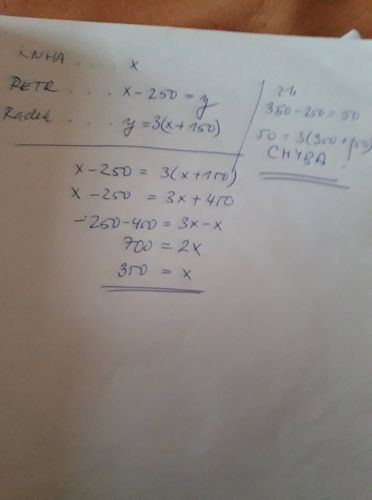 KNIHA .... x
PETR .... x - 250 = y
Radek .... y = 3(x + 150)
x - 250 = 3(x + 150)
x - 250 = 3x + 450
-250 - 450 = 3x - x
700 = 2x
350 = x
zk
350 - 250 = 50
50 = 3(350 + 150)
CHYBA!